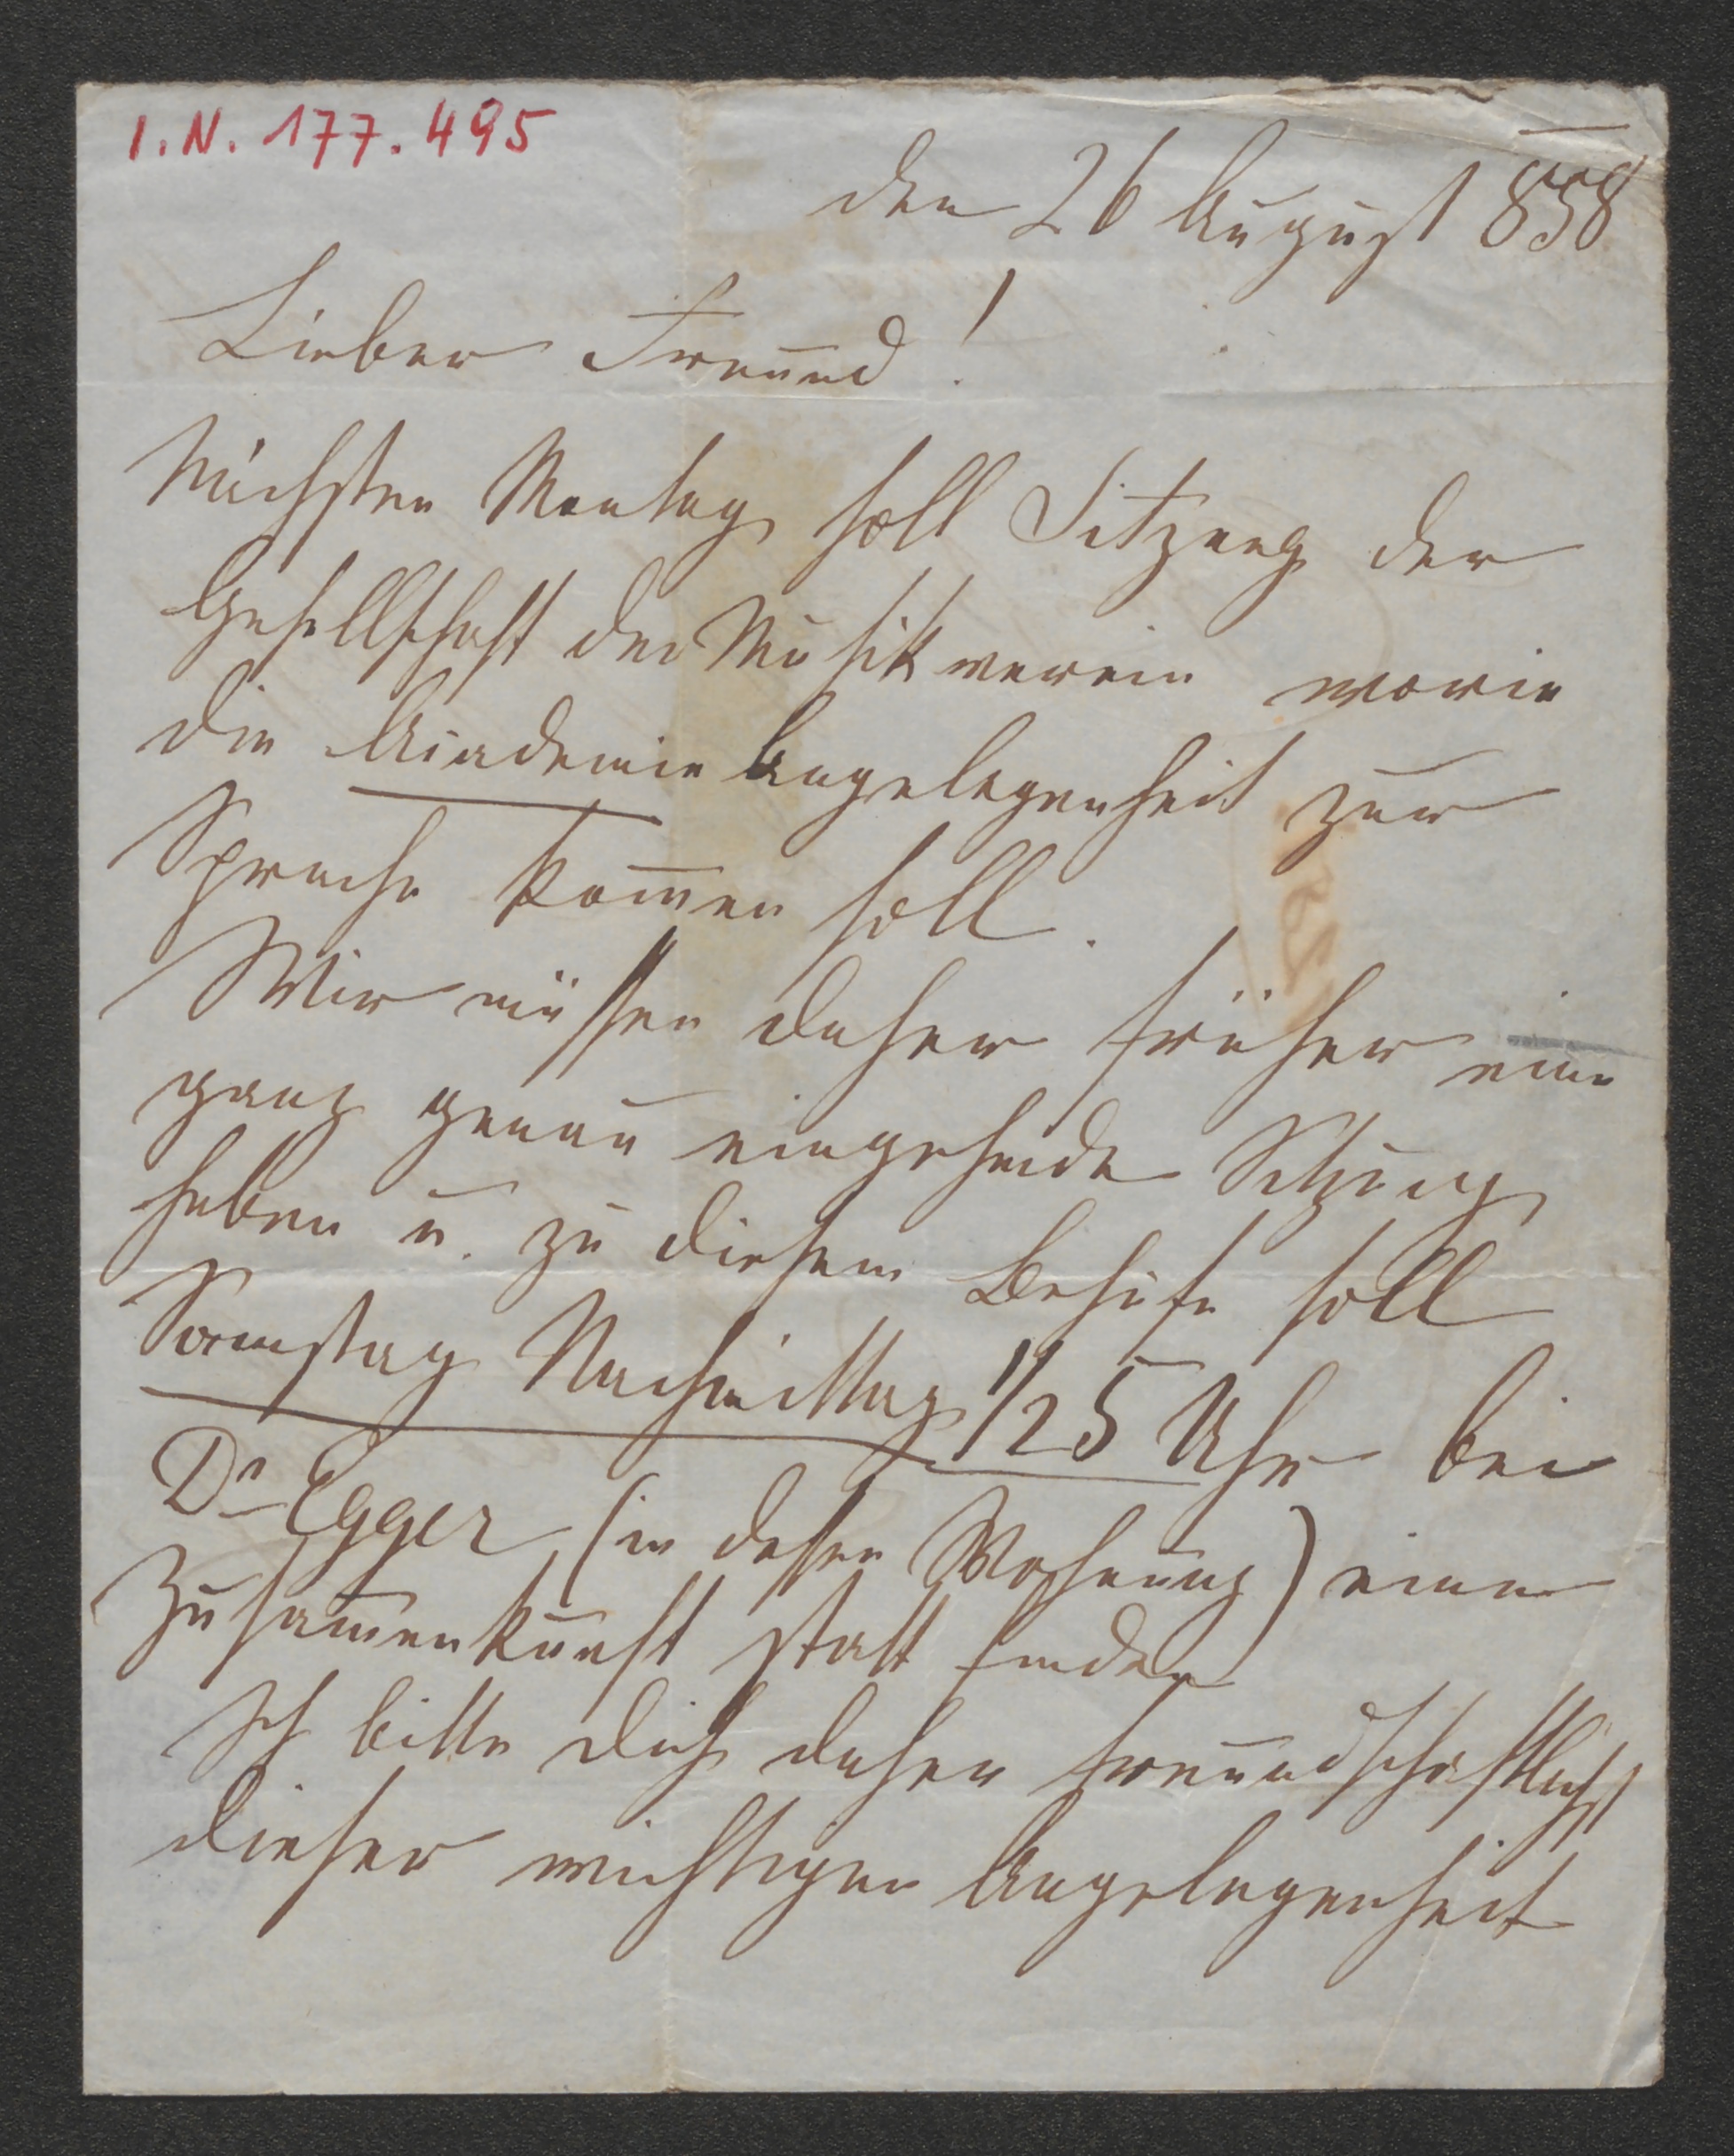 I.N. 177.495
den 26 August 858
Lieber Freund!
Nächsten Montag soll Sitzung der
Gesellschaft des Musikverein worin
die Akademie Angelegenheit zur
Sprache kom̅en soll.
Wir müssen daher früher eine
ganz genau eingehende Sitzung
haben u. zu diesem Behufe soll
Samstag Nachmittag 1/2 5 Uhr bei
Dr Egger (in dessen Wohnung) eine
Zusam̅enkunft statt finden
Ich bitte dich daher freundschaftlichst
dieser wichtigen Angelegenheit